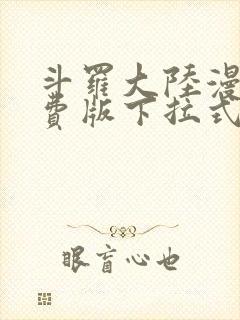 斗羅大陸漫
費版下拉式
眼盲心也